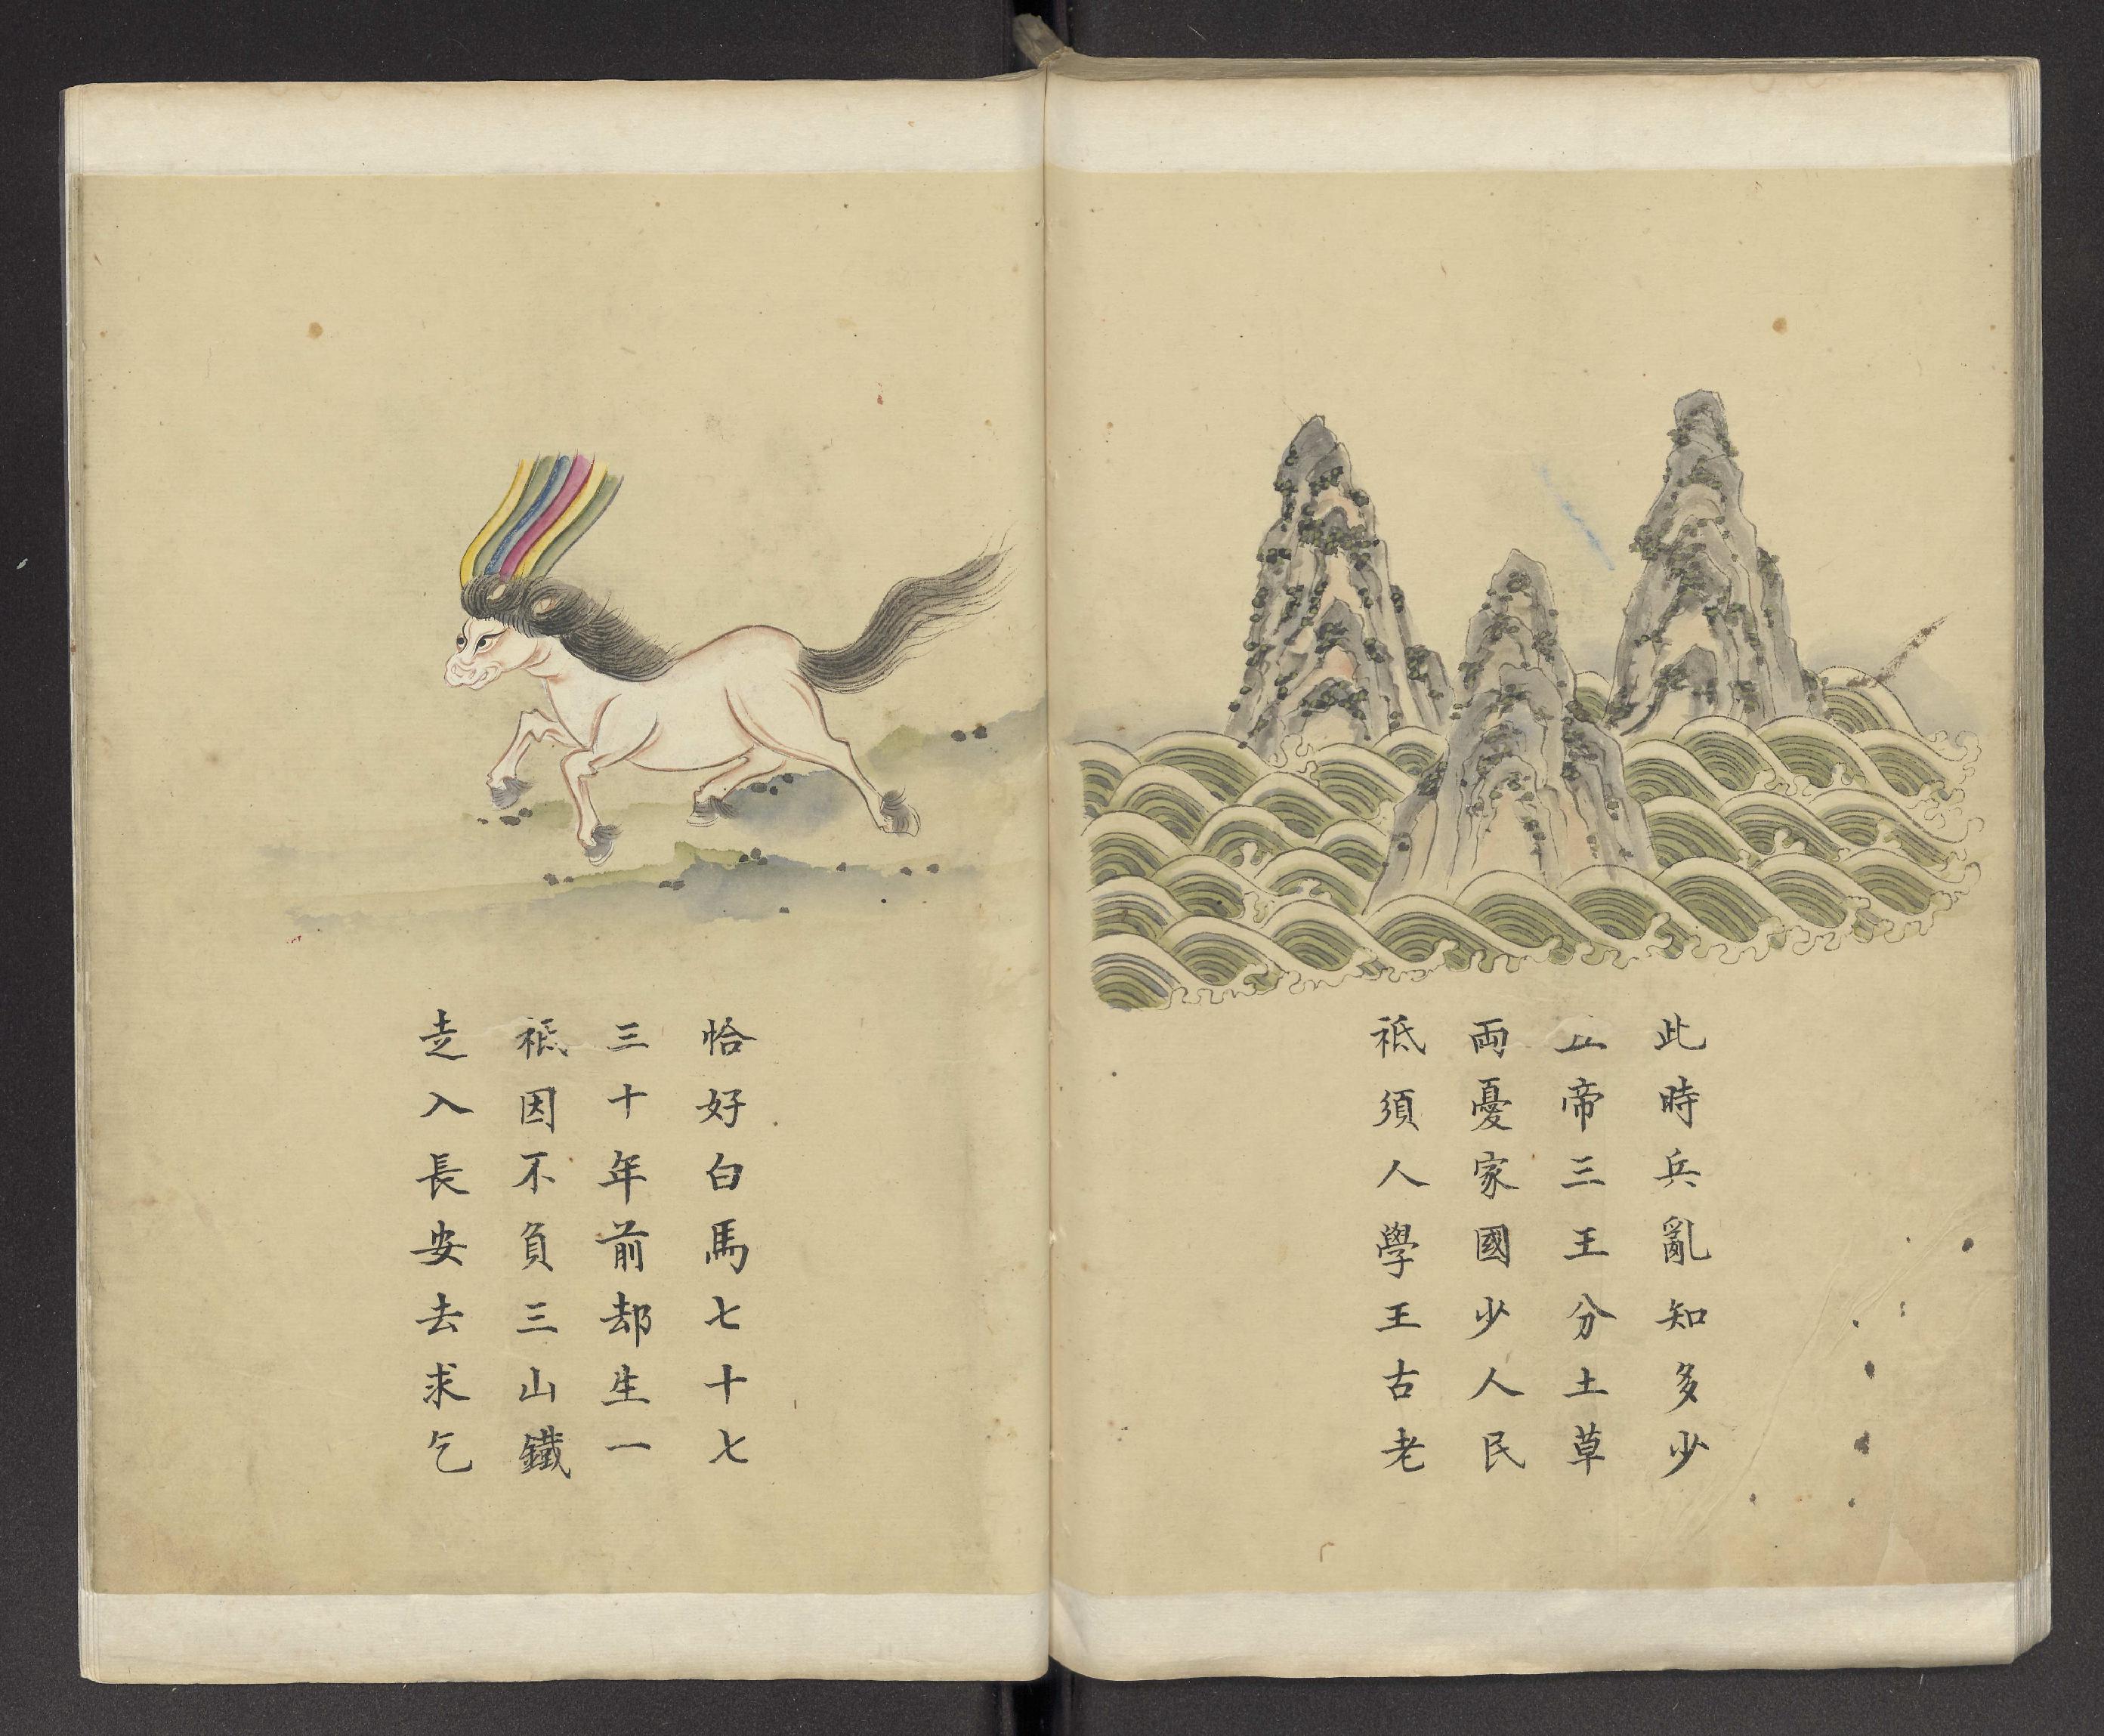 此時兵亂知多少
帝三王分土草
両憂家國少人民
祗須人學王古老
恰好白馬七十七
三十年前却生一
祗因不負三山鐵
走入長安去求乞